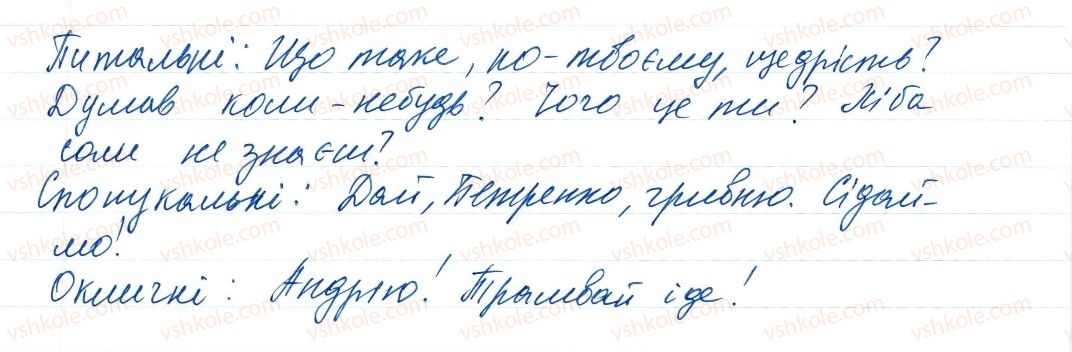 Питальні: Що таке, по-твоєму, щедрість?
Думав коли-небудь? Чого це ти? Хіба
соли не знаєш?
Спонукальні: Дай, Петренко, гривню. Сідай-
мо!
Окличні: Андрію! Трамвай іде!